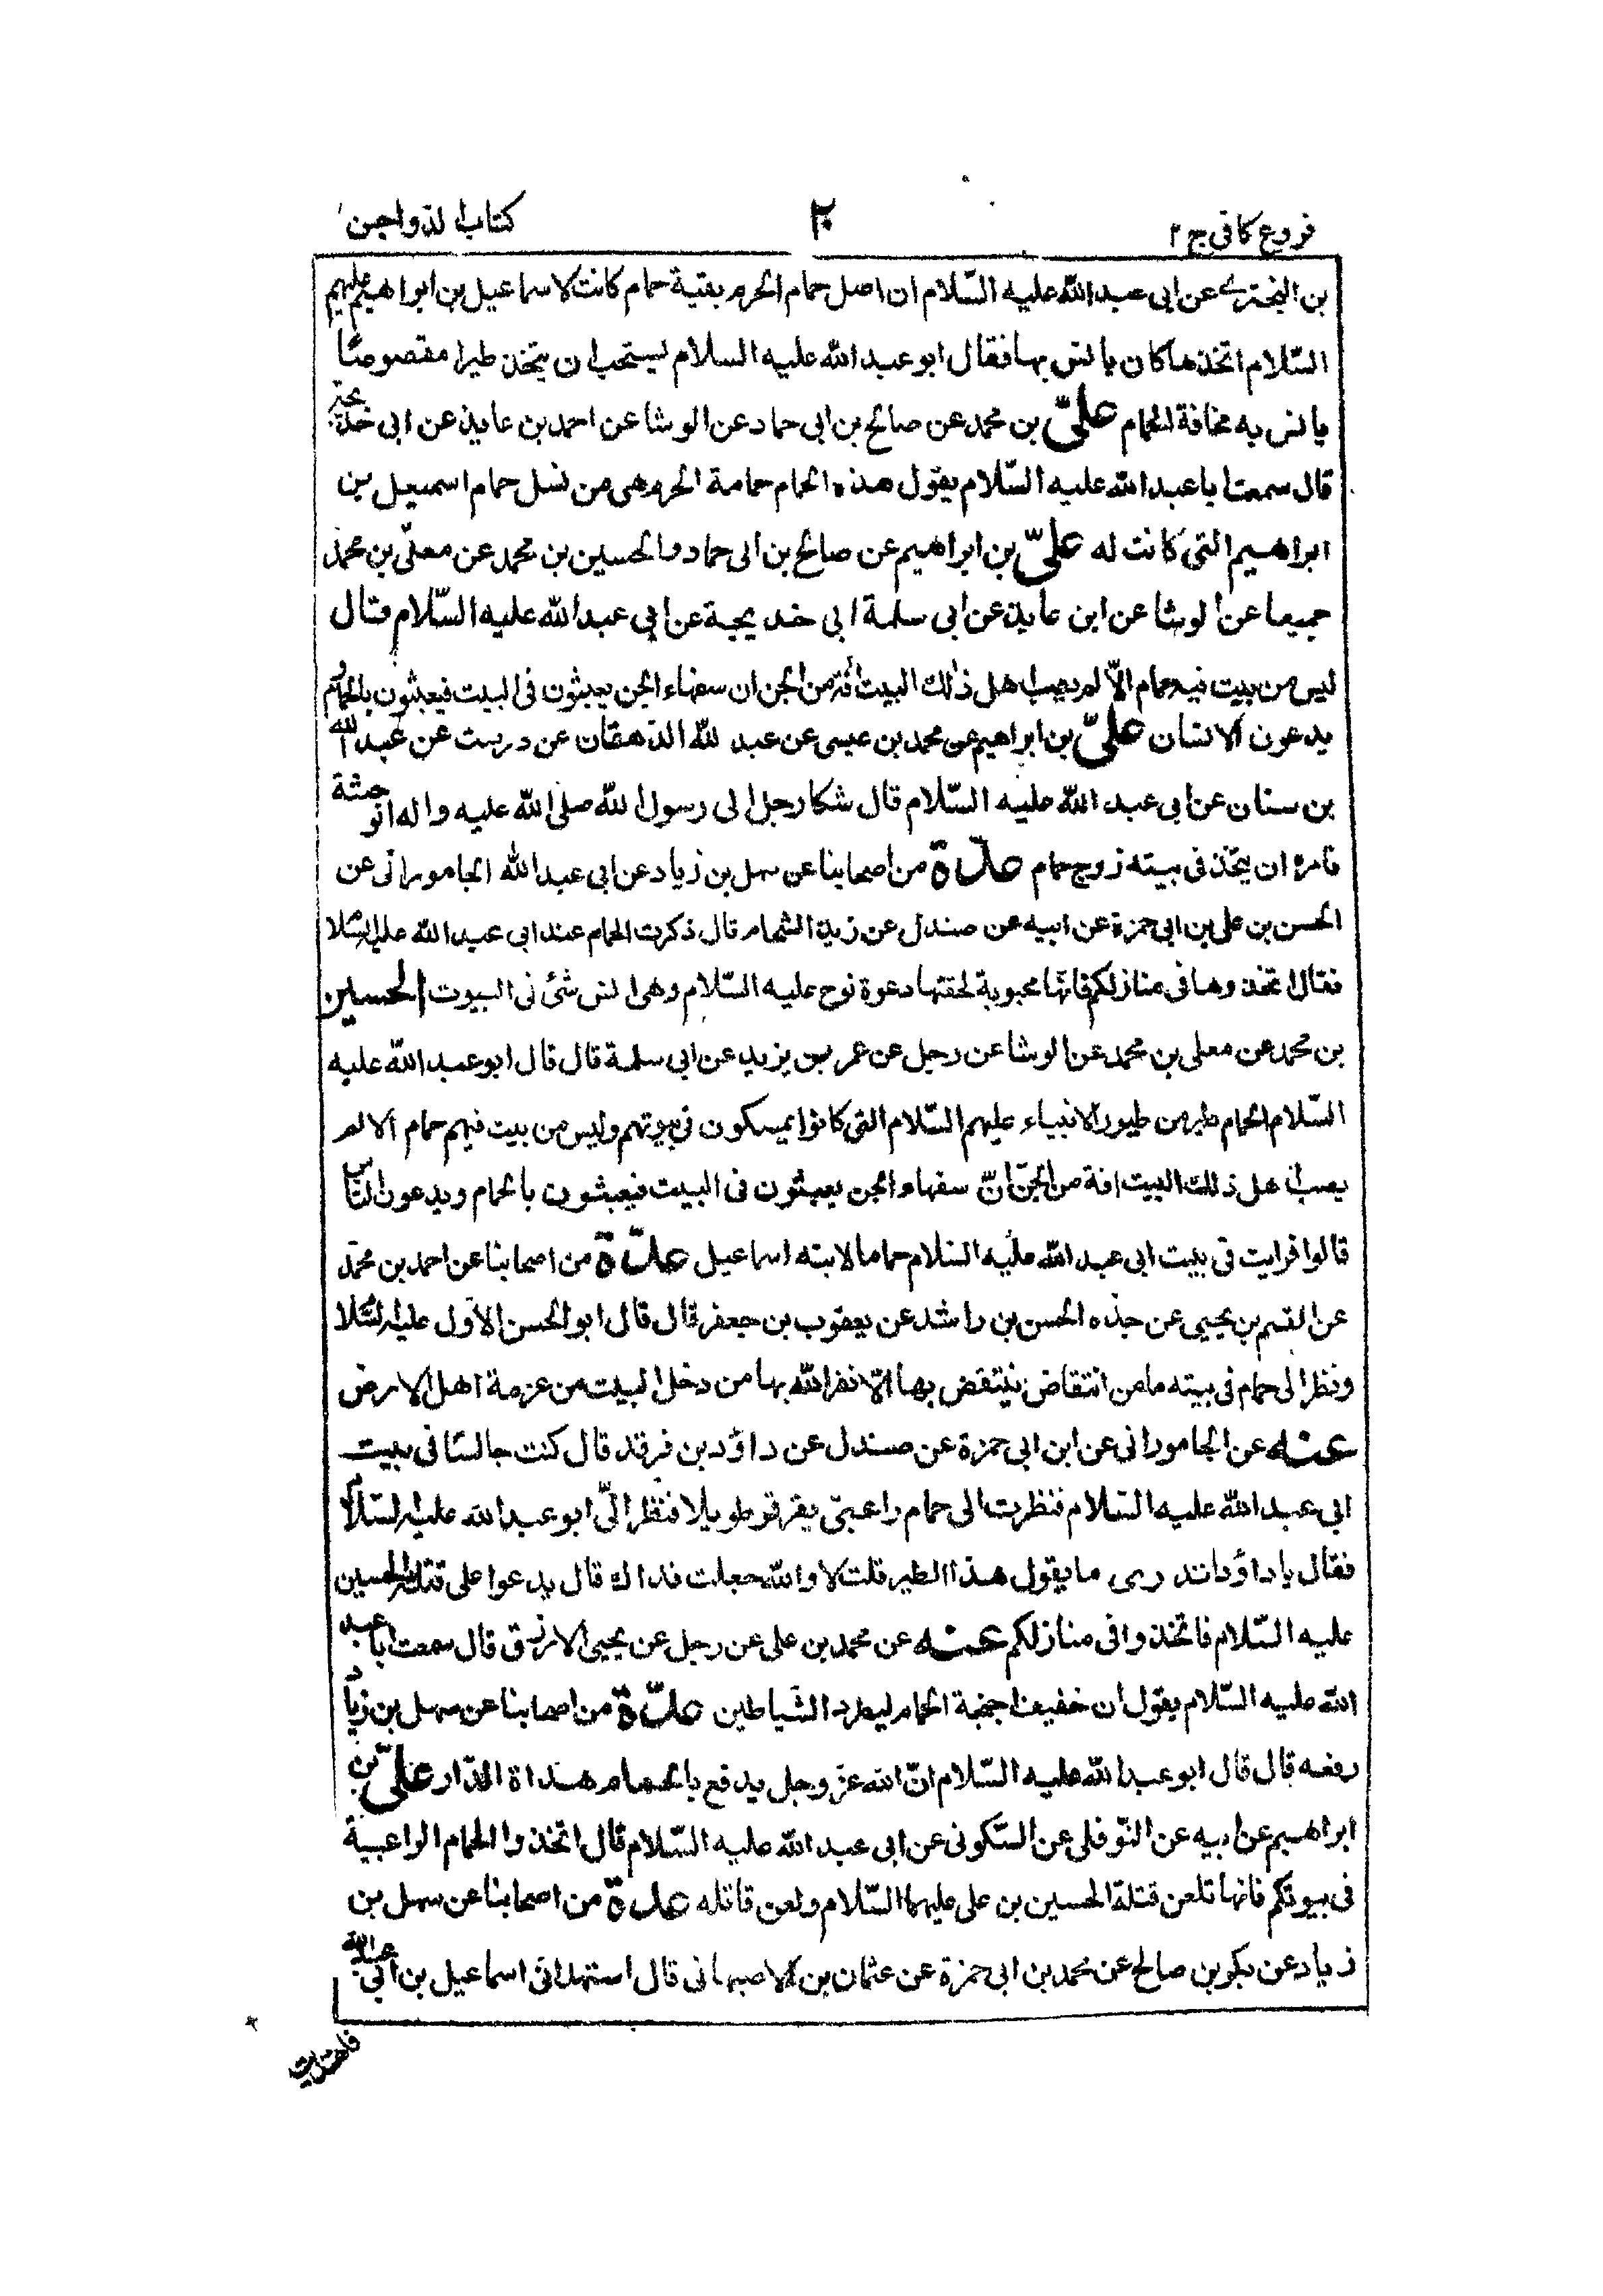 فروع كافي ج ٢
٢٠
كتاب الدواجن
بن البخترى عن ابى عبد الله عليه السّلام ان اصل حمام الحرم بقية حمام كانت لاسماعيل بن ابراهيم عليهم
السّلام اتخذها كان يانس بها فقال ابو عبد الله عليه السلام يستحب ان يتخذ طيرا مقصوصًا
يانس به مخافة الحمام علىّ بن محمد عن صالح بن ابى حماد عن الوشا عن احمد بن عايذ عن ابى خديجة
قال سمعت ابا عبد الله عليه السّلام يقول هذه الحمام حمامة الحرم هى من نسل حمام اسمعيل بن
ابراهيم التى كانت له علىّ بن ابراهيم عن صالح بن ابى حماد والحسين بن محمد عن معلّى بن محمد
جميعا عن الوشا عن ابن عايذ عن ابى سلمة ابى خديجة عن ابى عبد الله عليه السّلام قال
ليس من بيت فيه حمام الاّ لم يصب اهل ذلك البيت افة من الجن ان سفهاء الجن يعبثون فى البيت فيعبثون بالحمام و
يدعون الانسان علىّ بن ابراهيم عن محمد بن عيسى عن عبد الله الدهقان عن درست عن عبد الله
بن سنان عن ابى عبد الله عليه السّلام قال شكا رجل الى رسول الله صلى الله عليه واله الوحشة
فامره ان يتخذ فى بيته زوج حمام عدّة من اصحابنا عن سهل بن زياد عن ابى عبد الله الجامورانى عن
الحسن بن على بن ابى حمزة عن ابيه عن صندل عن زيد الشحام قال ذكرت الحمام عند ابى عبد الله عليه السّلام
فقال اتخذوها فى منازلكم فانّها محبوبة لحقتها دعوة نوح عليه السّلام وهى انس شئ فى البيوت الحسين
بن محمد عن معلى بن محمد عن الوشا عن رجل عن عمر بن يزيد عن ابى سلمة قال قال ابو عبد الله عليه
السّلام الحمام طير من طيور الانبياء عليهم السّلام التى كانوا يمسكون فى بيوتهم وليس من بيت فيهم حمام الا لم
يصب اهل ذلك البيت افة من الجنّ انّ سفهاء الجن يعبثون فى البيت فيعبثون بالحمام ويدعون النّاس
قالوا فرايت فى بيت ابى عبد الله عليه السلام حماما لابنه اسماعيل عدّة من اصحابنا عن احمد بن محمّد
عن القسم بن يحيى عن جدّه الحسن بن راشد عن يعقوب بن جعفر قال قال ابو الحسن الاوّل عليه السّلام
ونظر الى حمام فى بيته ما من انتقاض ينتقض بها الاّ نفر الله بها من دخل البيت من عزمة اهل الارض
عنه عن الجامورانى عن ابن ابى حمزة عن صندل عن داؤد بن فرقد قال كنت جالسًا فى بيت
ابى عبد الله عليه السّلام فنظرت الى حمام راعبىّ يقرقر طويلا فنظر الىّ ابو عبد الله عليه السّلام
فقال يا داؤد اتدرى ما يقول هذا الطير قلت لا والله جعلت فداك قال يدعوا على قتلة الحسين
عليه السّلام فاتخذوا فى منازلكم عنه عن محمد بن على عن رجل عن يحيى الازرق قال سمعت ابا عبد
الله عليه السّلام يقول ان خفيف اجنحة الحمام ليطرد الشّياطين عدّة من اصحابنا عن سهل بن زياد
رفعه قال قال ابو عبد الله عليه السّلام انّ الله عزّ وجل يدفع بالحمام هذاة الدّار علىّ بن
ابراهيم عن ابيه عن النّوفلى عن السّكونى عن ابى عبد الله عليه السّلام قال اتخذوا الحمام الراعبية
فى بيوتكم فانها تلعن قتلة الحسين بن على عليهما السّلام ولعن قاتله عدة من اصحابنا عن سهل بن
زياد عن بكر بن صالح عن محمد بن ابى حمزة عن عثمان بن الاصبهانى قال استهدانى اسماعيل بن ابى عبد الله
فاهديت